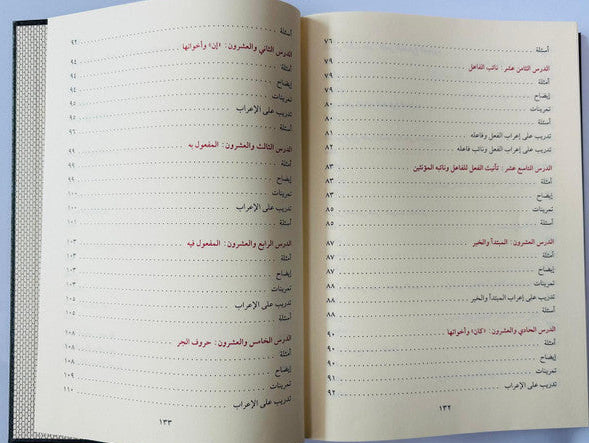 أسئلة ... ٧٦
الدرس الثامن عشر: نائب الفاعل ... ٧٩
أمثلة ... ٧٩
إيضاح ... ٧٩
تمرينات ... ٨٠
أسئلة ... ٨٠
تدريب على إعراب الفعل وفاعله ... ٨١
تدريب على إعراب الفعل ونائب فاعله ... ٨٢
الدرس التاسع عشر: تأنيث الفعل للفاعل ونائبه المؤنثين ... ٨٣
أمثلة ... ٨٣
إيضاح ... ٨٣
تمرينات ... ٨٥
أسئلة ... ٨٥
الدرس العشرون: المبتدأ والخبر ... ٨٧
أمثلة ... ٨٧
إيضاح ... ٨٧
تمرينات ... ٨٨
تدريب على إعراب المبتدأ والخبر ... ٨٨
أسئلة ... ٨٨
الدرس الحادي والعشرون: «كان» وأخواتها ... ٩٠
أمثلة ... ٩٠
إيضاح ... ٩٠
تمرينات ... ٩١
تدريب على الإعراب ... ٩٢
١٣٢
أسئلة ... ٩٢
الدرس الثاني والعشرون: «إن» وأخواتها ... ٩٤
أمثلة ... ٩٤
إيضاح ... ٩٤
تمرينات ... ٩٥
تدريب على الإعراب ... ٩٥
أسئلة ... ٩٦
الدرس الثالث والعشرون: المفعول به ... ٩٩
أمثلة ... ٩٩
إيضاح ... ٩٩
تمرينات ... ١٠٠
تدريب على الإعراب ... ١٠١
الدرس الرابع والعشرون: المفعول فيه ... ١٠٣
أمثلة ... ١٠٣
إيضاح ... ١٠٣
تمرينات ... ١٠٣
تدريب على الإعراب ... ١٠٥
أسئلة ... ١٠٥
الدرس الخامس والعشرون: حروف الجر ... ١٠٨
أمثلة ... ١٠٨
إيضاح ... ١٠٨
تمرينات ... ١٠٩
تدريب على الإعراب ... ١١٠
١٣٣